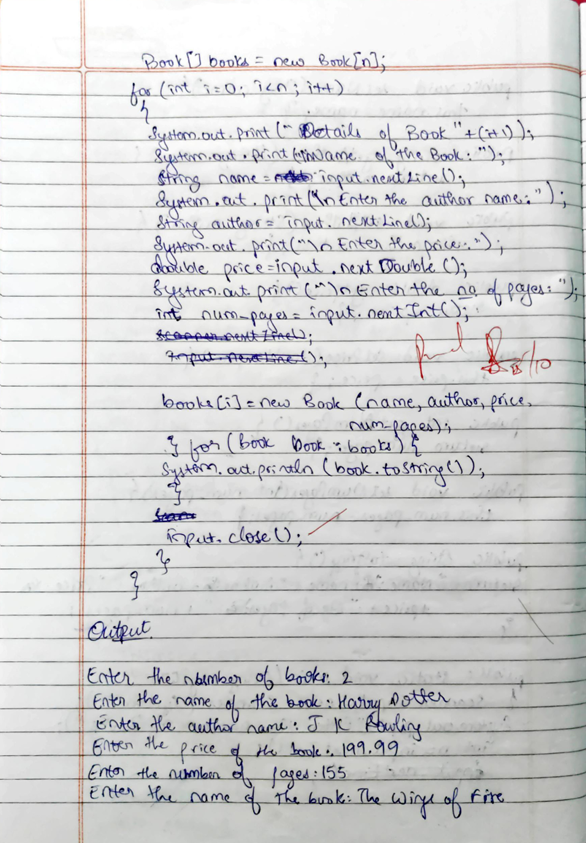 Book[] books = new Book[n];
for (int i=0; i<n; i++)
{
System.out.print(" Details of Book "+(i+1));
System.out.print("\nName of the Book: ");
String name = input.nextLine();
System.out.print("\n Enter the author name: ");
String author = input.nextLine();
System.out.print("\n Enter the price: ");
double price = input.nextDouble();
System.out.print("\n Enter the no of pages: ");
int num_pages = input.nextInt();
input.nextLine();
books[i] = new Book (name, author, price,
num_pages);
} for (Book book : books) {
System.out.println (book.toString());
}
input.close();
}
}
Output
Enter the number of books: 2
Enter the name of the book: Harry Potter
Enter the author name: J K Rowling
Enter the price of the book: 199.99
Enter the number of pages: 155
Enter the name of the book: The Wings of Fire